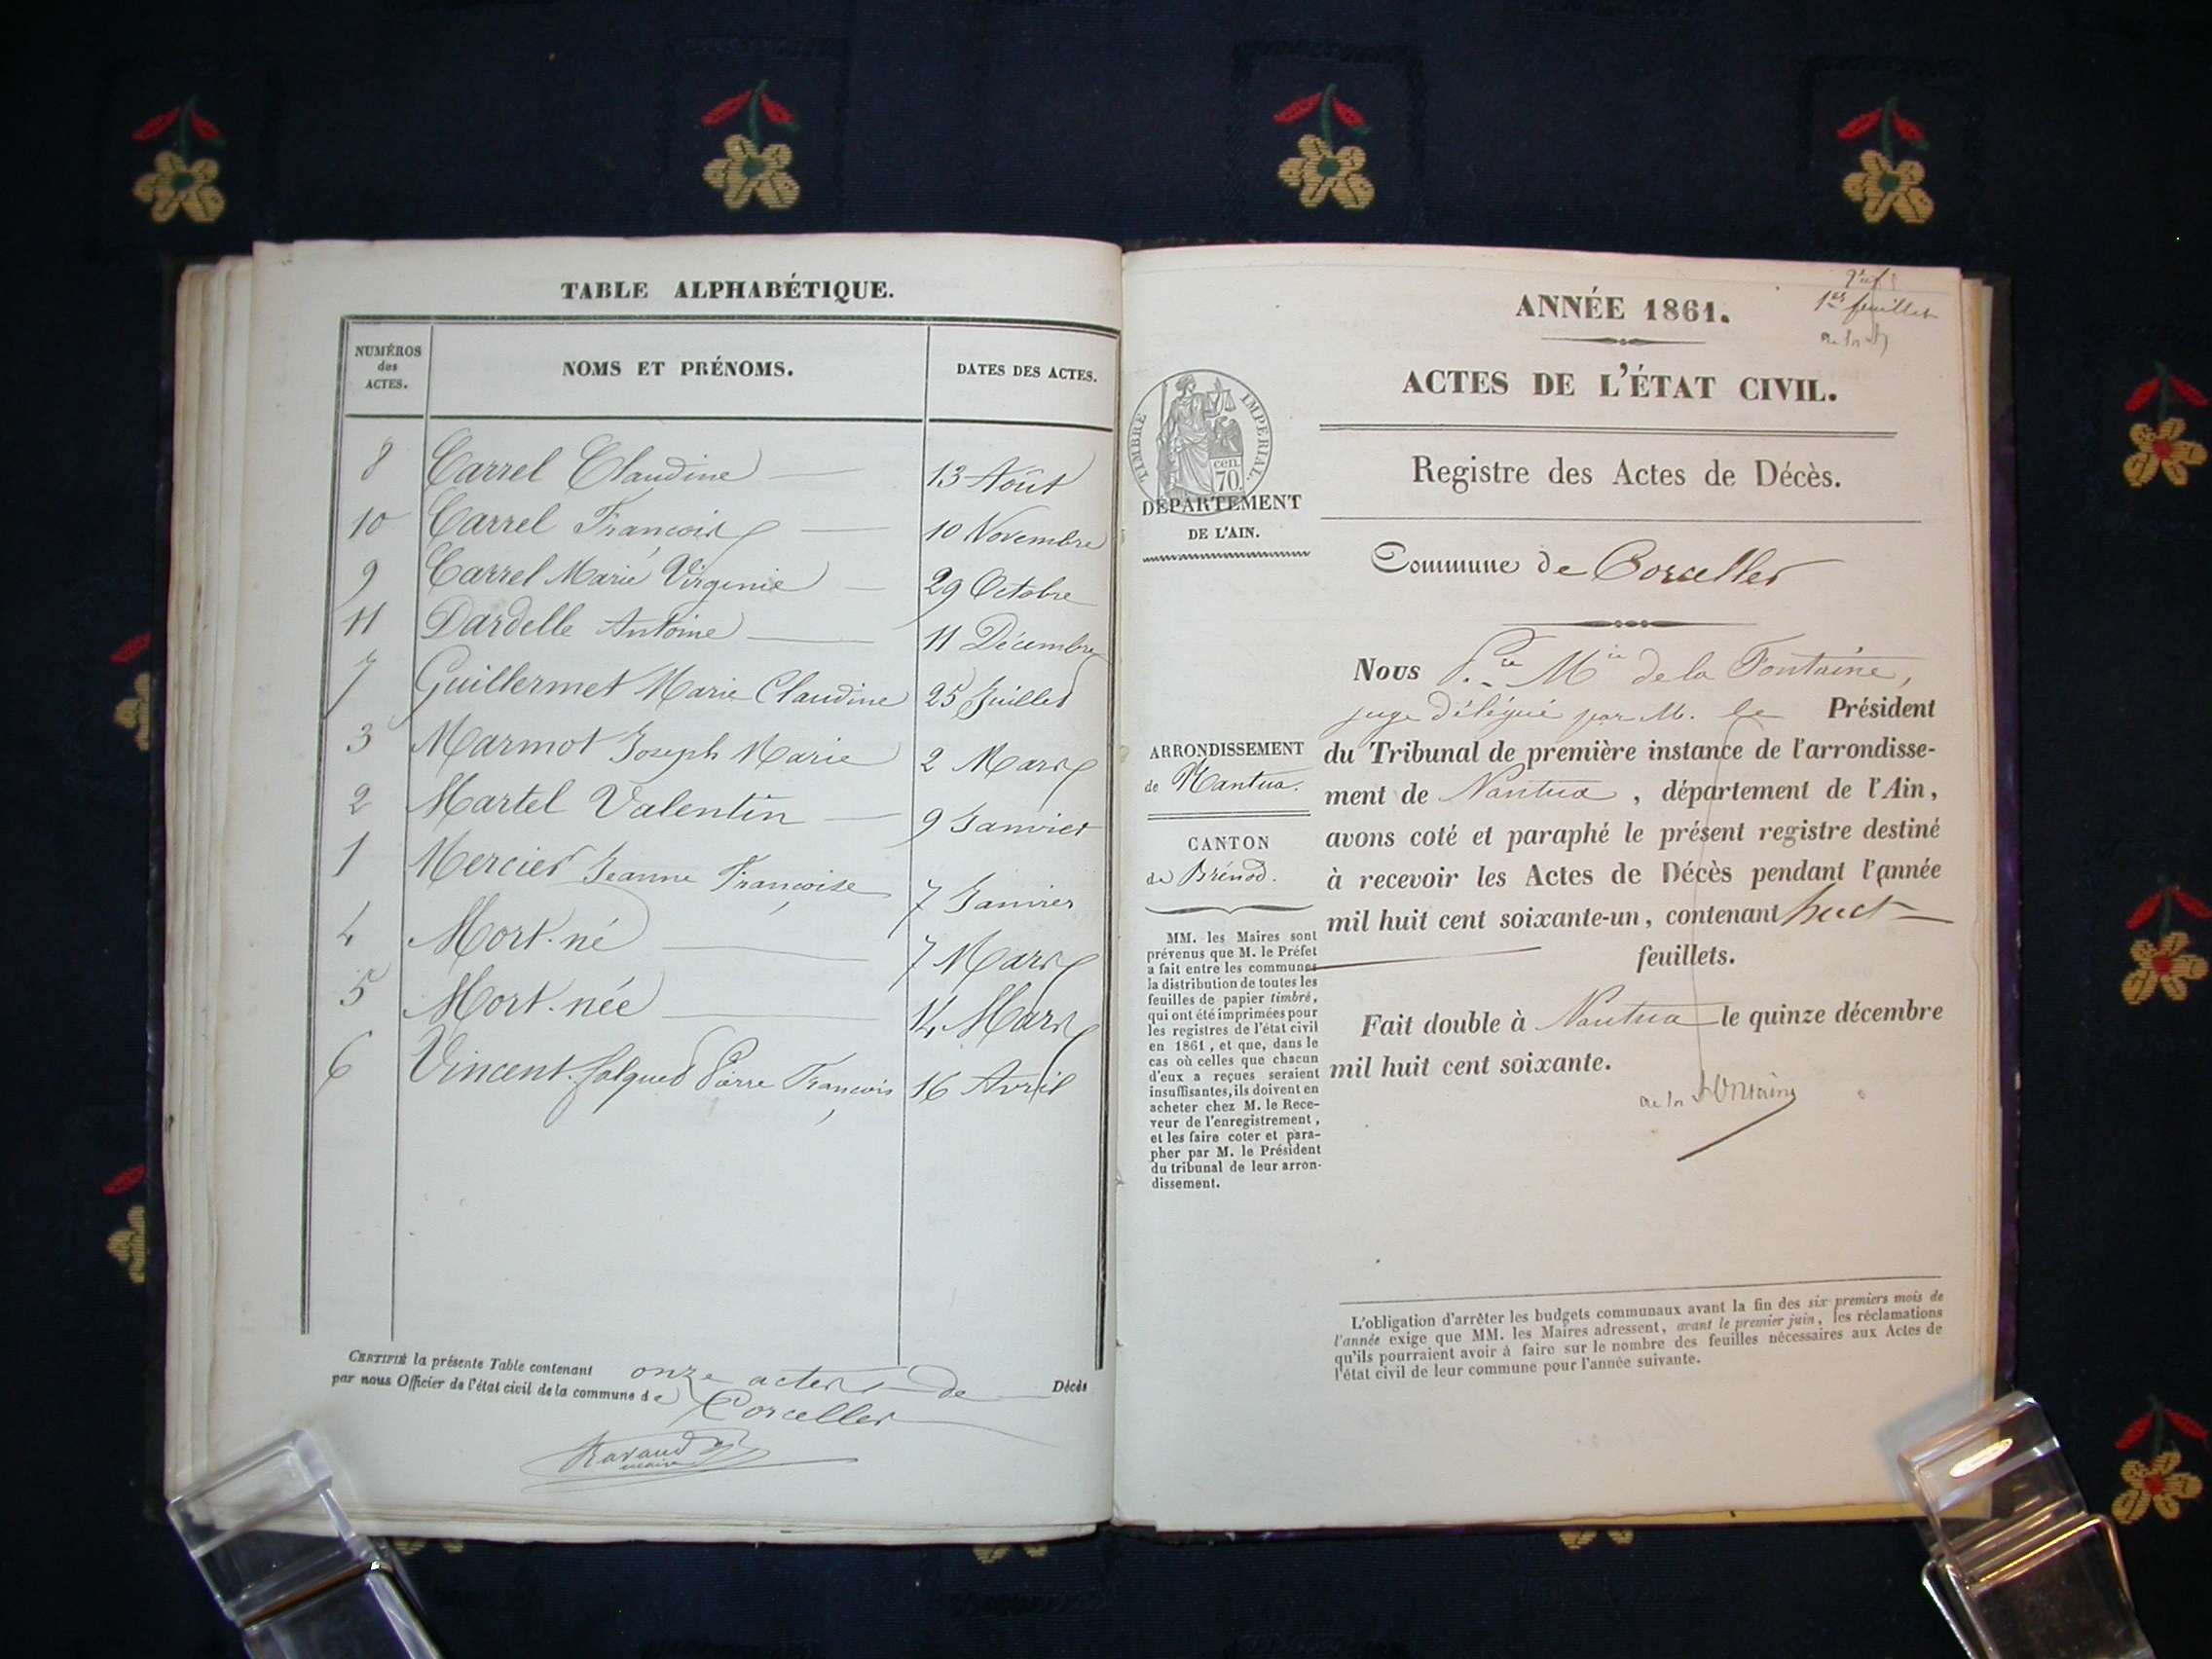 TABLE ALPHABÉTIQUE.
NUMÉROS
des
ACTES.
NOMS ET PRÉNOMS.
DATES DES ACTES.
8 Carrel Claudine 13 Août
10 Carrel François 10 Novembre
9 Carrel Marie Virginie 29 Octobre
11 Dardelle Antoine 11 Décembre
7 Guillermet Marie Claudine 25 Juillet
3 Marmot Joseph Marie 2 Mars
2 Martel Valentin 9 Janvier
1 Mercier Jeanne Françoise 7 Janvier
4 Mort-né 7 Mars
5 Mort-née 14 Mars
6 Vincent Pierre François 16 Avril
CERTIFIÉ la présente Table contenant onze actes de Décès
par nous Officier de l'état civil de la commune de Corcelles
Ravaud
maire
1er feuillet
de la
ANNÉE 1861.
ACTES DE L'ÉTAT CIVIL.
TIMBRE IMPERIAL.
cen.
70.
DÉPARTEMENT
DE L'AIN.
Registre des Actes de Décès.
Commune de Corcelles
Nous de la Fontaine,
juge délégué par M. le Président
du Tribunal de première instance de l'arrondisse-
ment de Nantua, département de l'Ain,
avons coté et paraphé le présent registre destiné
à recevoir les Actes de Décès pendant l'année
mil huit cent soixante-un, contenant huit
feuillets.
Fait double à Nantua le quinze décembre
mil huit cent soixante.
de la Fontaine
ARRONDISSEMENT
de Nantua.
CANTON
de Brénod.
MM. les Maires sont
prévenus que M. le Préfet
a fait entre les communes
la distribution de toutes les
feuilles de papier timbré,
qui ont été imprimées pour
les registres de l'état civil
en 1861, et que, dans le
cas où celles que chacun
d'eux a reçues seraient
insuffisantes, ils doivent en
acheter chez M. le Rece-
veur de l'enregistrement,
et les faire coter et para-
pher par M. le Président
du tribunal de leur arron-
dissement.
L'obligation d'arrêter les budgets communaux avant la fin des six premiers mois de
l'année exige que MM. les Maires adressent, avant le premier juin, les réclamations
qu'ils pourraient avoir à faire sur le nombre des feuilles nécessaires aux Actes de
l'état civil de leur commune pour l'année suivante.